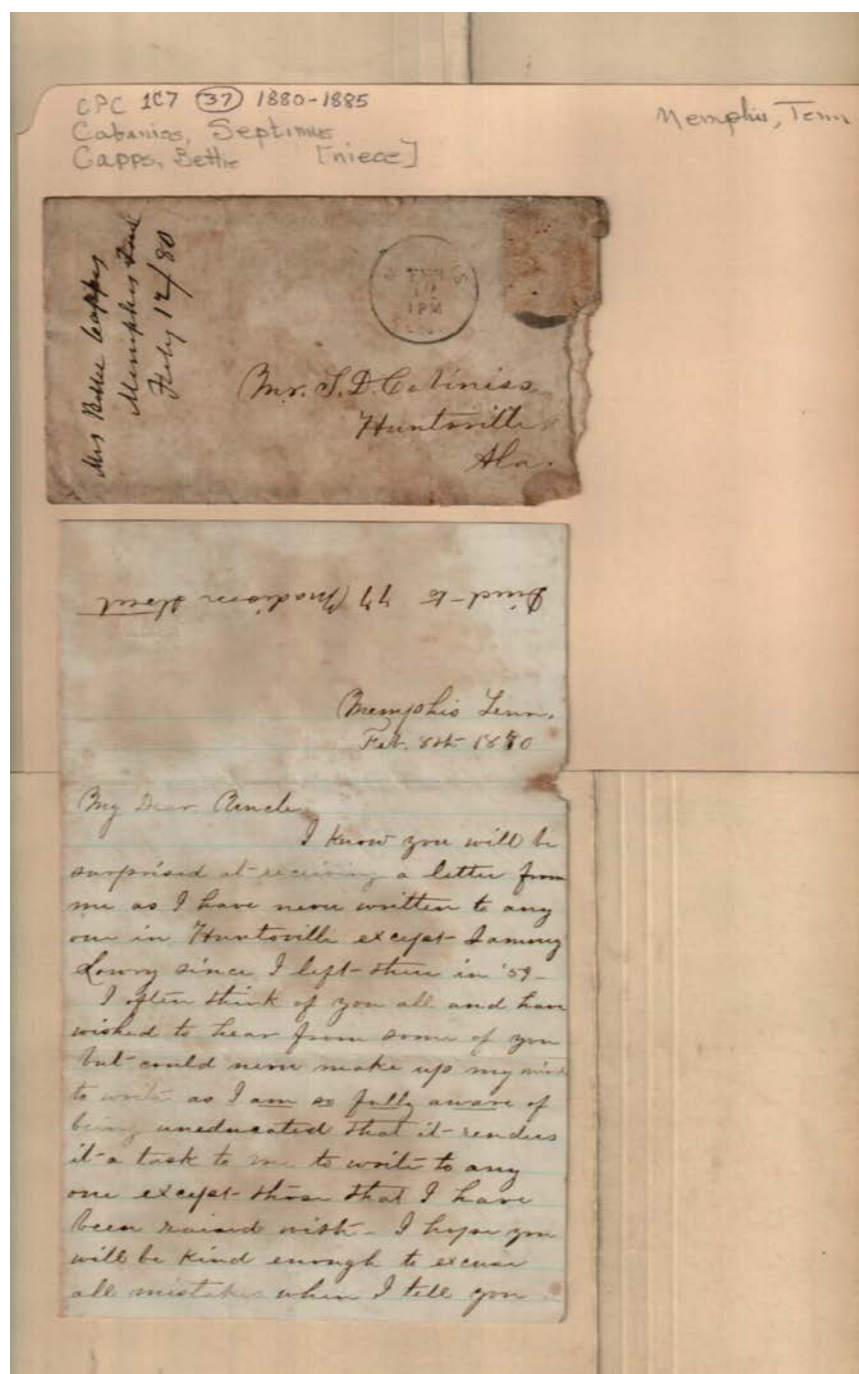 CPC 1C7 (37) 1880-1885
Cabaniss, Septimus
Capps, Bettie [niece]
Memphis, Tenn
Mrs Bettie Capps
Memphis Tenn
Feby 12/80
10
1 PM
Mr. S. D. Cabiniss
Huntsville
Ala.
Direct to 77 Madison Street
Memphis Tenn.
Feb. 8th 1880
My Dear Uncle
I know you will be
surprised at receiving a letter from
me as I have never written to any
one in Huntsville except
Lowry since I left there in '59
I often think of you all and have
wished to hear from some of you
but could never make up my mind
to write as I am so fully aware of
being uneducated that it renders
it a task to me to write to any
one except those that I have
been raised with - I hope you
will be kind enough to excuse
all mistakes when I tell you